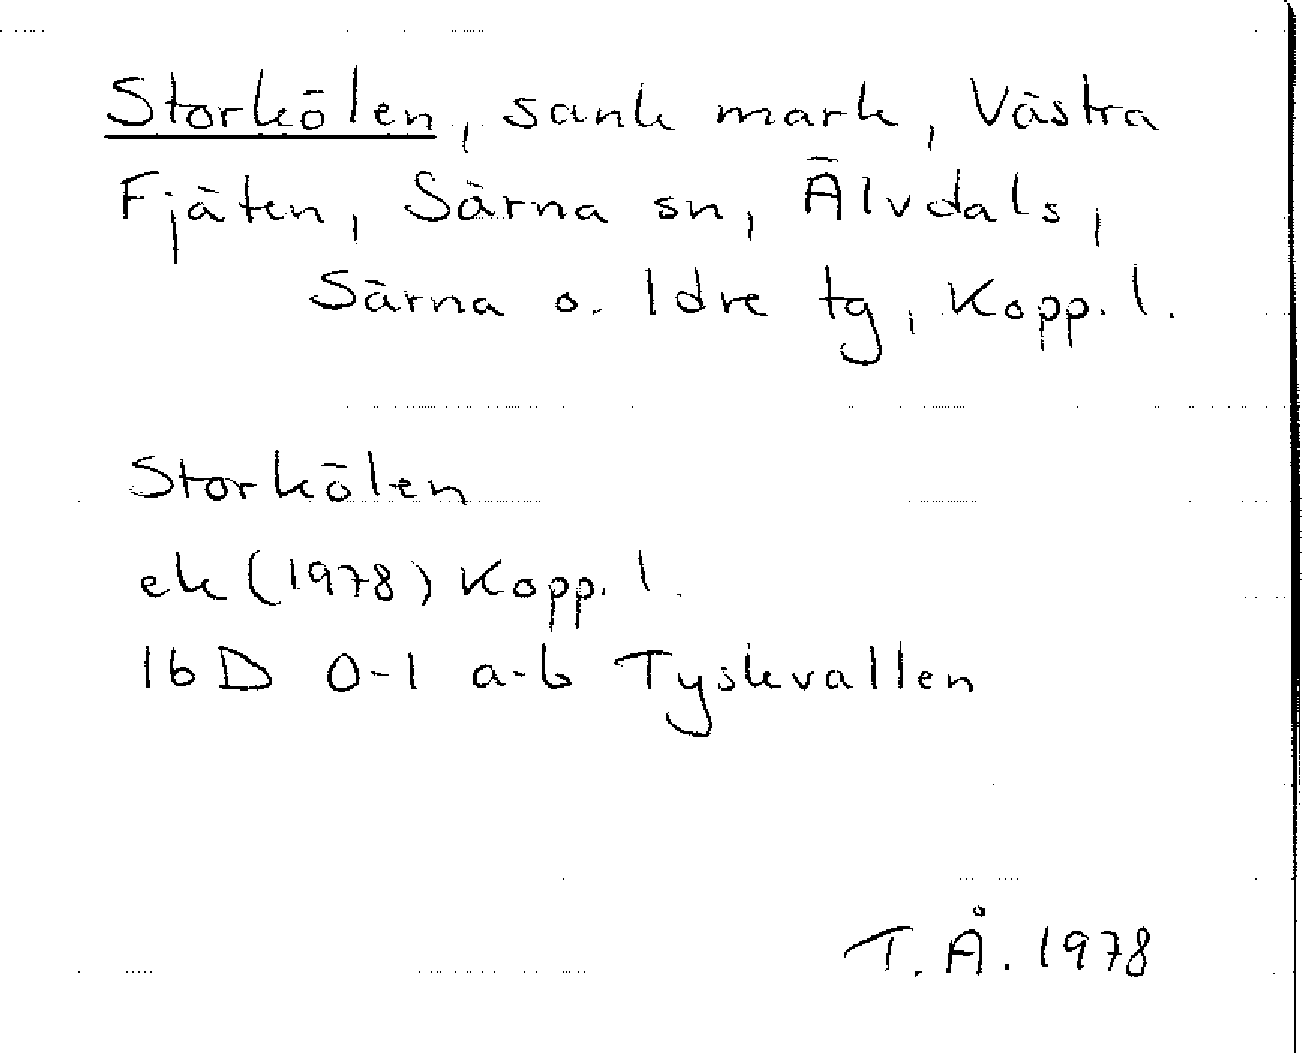 Storkölen, sank mark, Västra
Fjäten, Särna sn, Älvdals,
Särna o. Idre tg, Kopp. l.
Storkölen
ek (1978) Kopp. l.
16 D 0-1 a-b Tyskvallen
T. Å. 1978